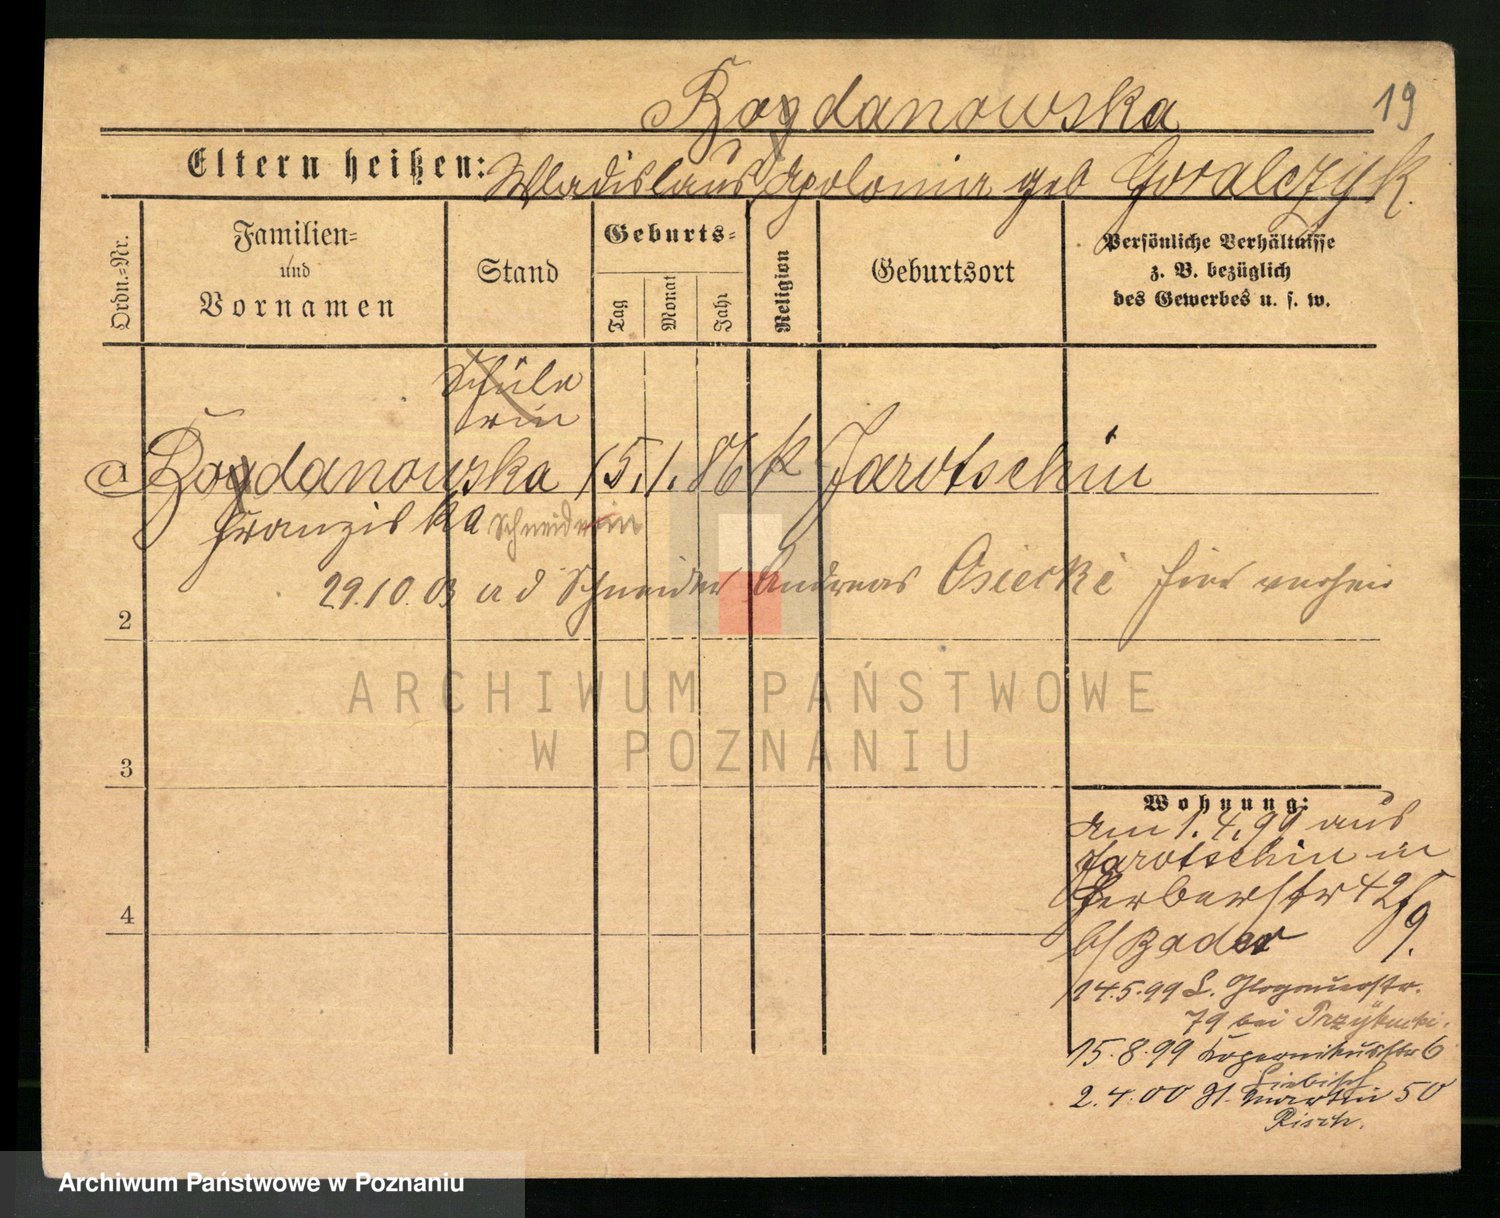 Bogdanowska
19
Eltern heißen: Wladislaus Apolonia geb Goralczyk.
Ordn.=Nr.
Familien=
und
Vornamen
Stand
Geburts=
Tag
Monat
Jahr
Religion
Geburtsort
Persönliche Verhältnisse
z. B. bezüglich
des Gewerbes u. s. w.
Schüle
rin
a Bogdanowska 15. 1. 86 k Jarotschin
Franziska Schneiderin
29.10.03 a d Schneider Andreas Osiecki hier verheir
2
3
4
Wohnung:
Am 1.4.99 aus
Jarotschin in
Gerberstr 42/9.
b/ Bader
14.5.99 L. Glogauerstr.
79 bei
15.8.99 Kopernikusstr 6
Liebisch
2.4.00 St. Martin 50
Risch.
ARCHIWUM PAŃSTWOWE
W POZNANIU
Archiwum Państwowe w Poznaniu